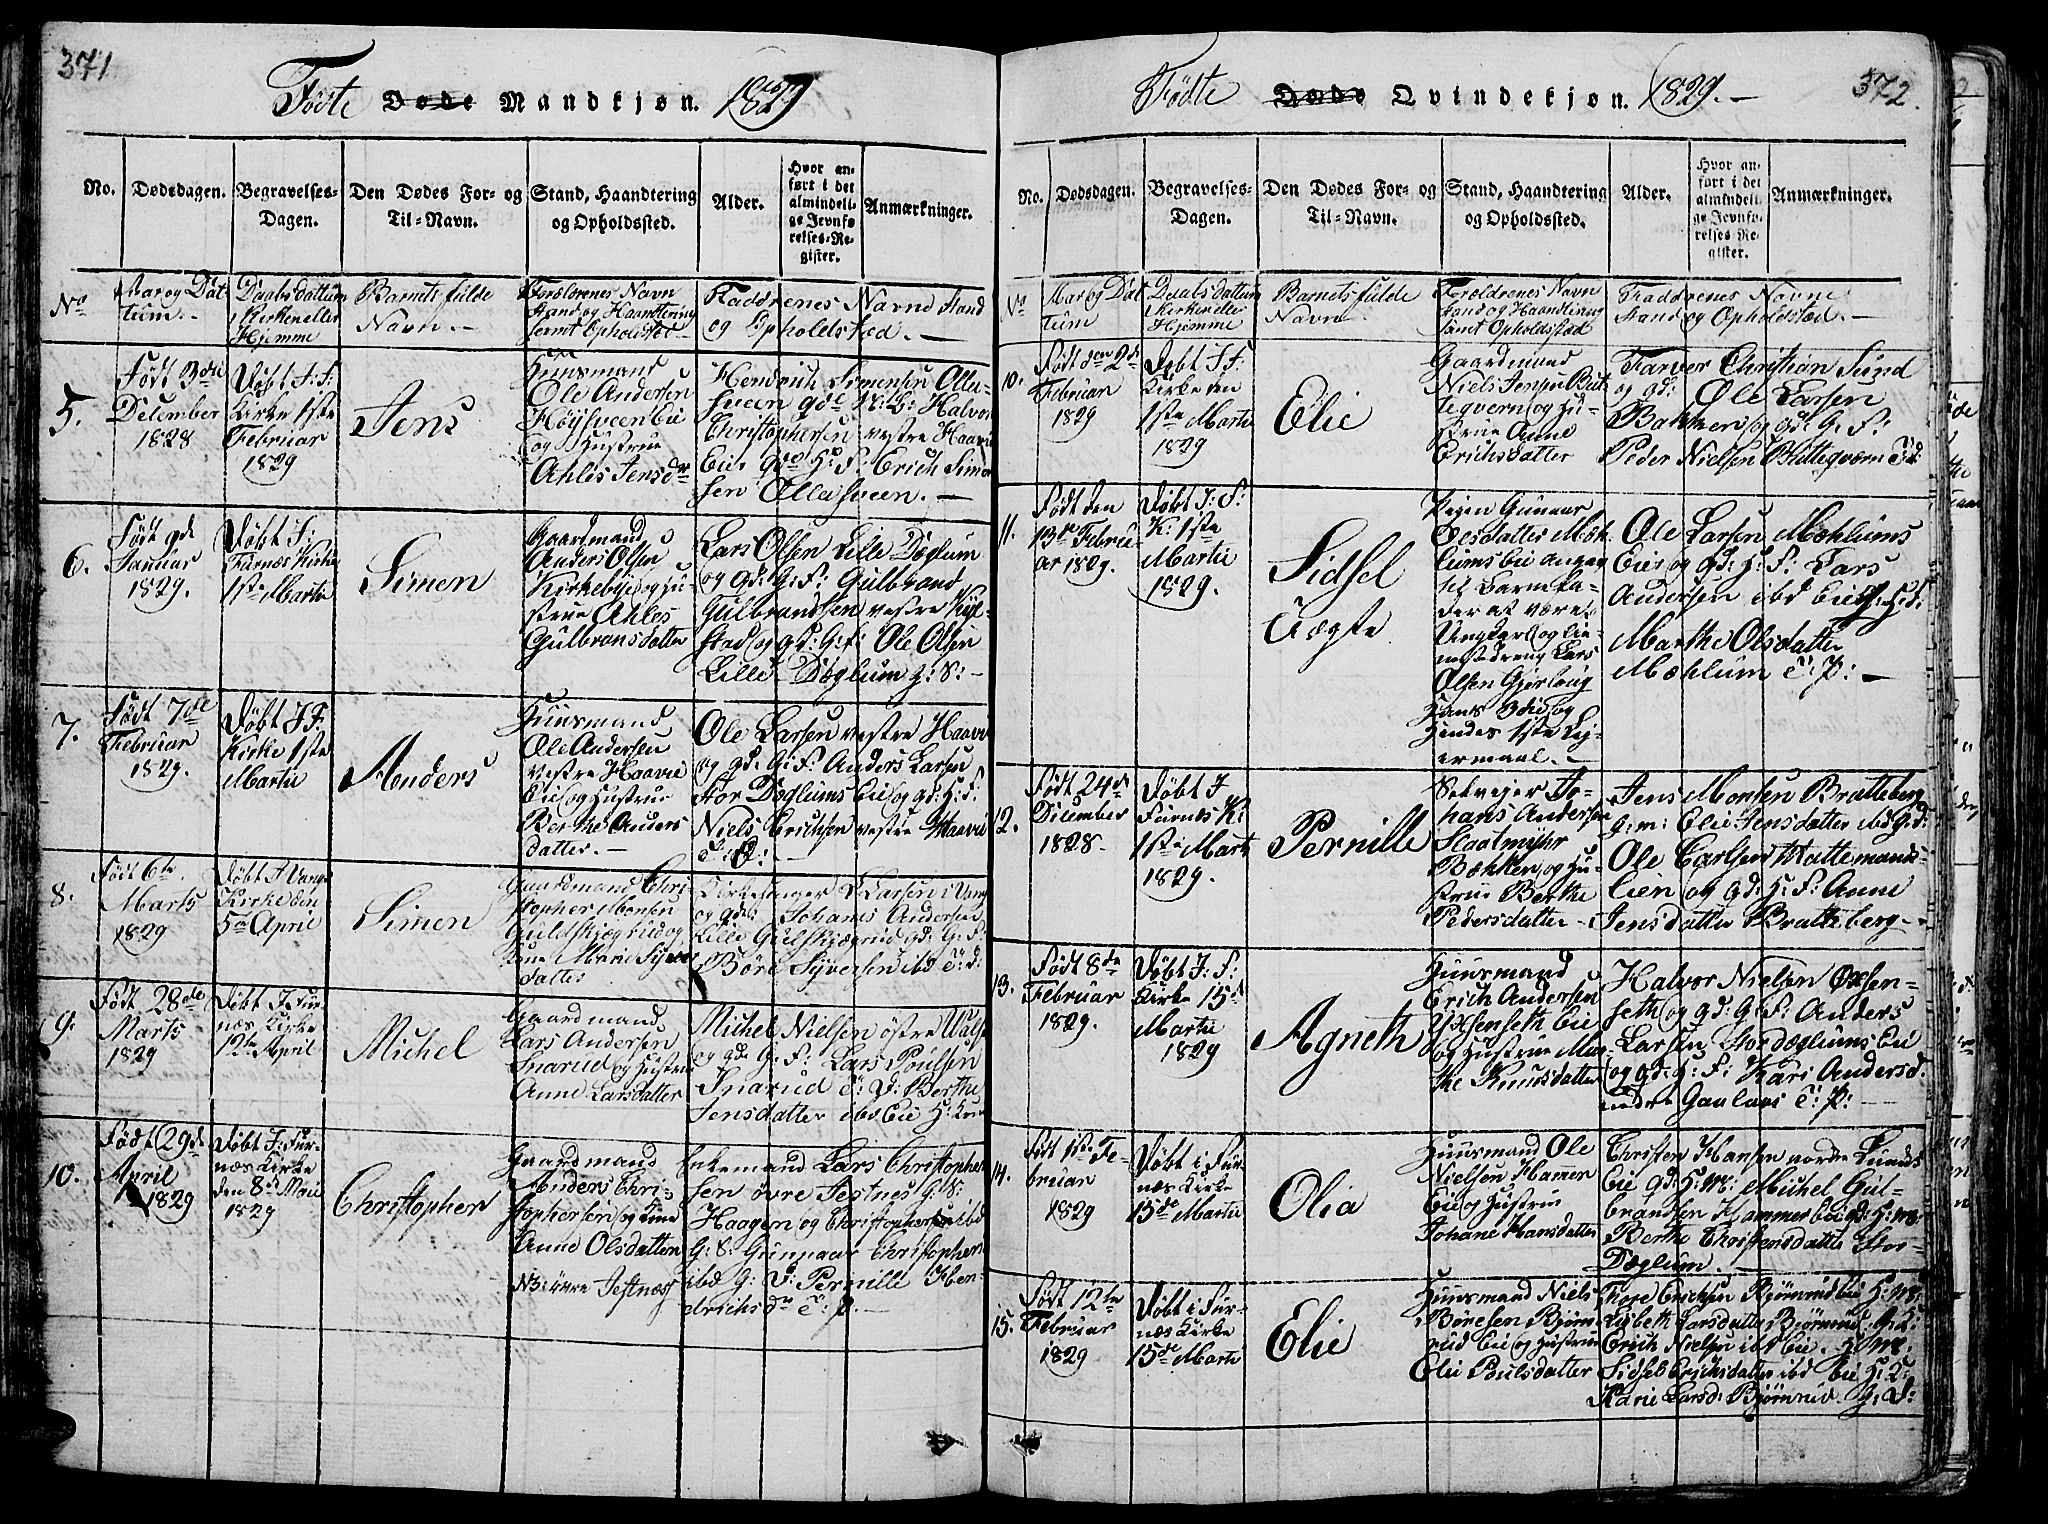 371
Fødte Døde Mandkjøn. 1829
No.
Dødsdagen.
Begravelses-
Dagen.
Den Dødes For- og
Til-Navn.
Stand, Haandtering
og Opholdssted.
Alder.
Hvor an-
ført i det
almindeli-
ge Jevnfø-
relses-Re-
gister.
Anmærkninger.
No
Aar og Dat-
tum
Daabsdattum
i Kirken eller
Hjemme
Barnets fulde
Navn.
Forældrenes Navn
Stand og Haandtering
samt Opholdsted
Faddrenes Navne Stand
og Opholdsted.
5.
Født 3die
December
1828
Døbt J: F:
Kirke 1ste
Februar
1829
Jens
Huusmand
Ole Andersen
Høysveen Eie
og Hustrue
Ahles Jensdr
Christophersen vestre Haavie
Eie
Erich Simen-
sen
6.
Født 9de
Januar
1829.
Døbt J:
Furnæs Kirke
1ste Martii
Simen
Gaardmand
Anders Olsen
Kirkebye og Hu-
strue Ahles
Gulbransdatter
Lars Olsen Lille Dæglum
og Gd: G: F: Gulbrand
Gulbrandsen vestre Kyl-
stad og gd: G: F: Ole Olsen
Lille Dæglum G: S:
7.
Født 7de
Februar
1829.
Døbt J F:
Kirke 1ste
Martii
Anders
Huusmand
Ole Andersen
vestre Haavie
Eie og Hustrue
Berthe Anders
datter.
Ole Larsen vestre Haavie
og gd. G: F: Anders Larsen
Stor Dæglums Eie og gd: H: F:
Niels Erichsen vestre Haavie
8.
Født 6te
Marts
1829
Døbt J Vangs
Kirke den
5te April
Simen
Gaardmand Chri-
stopher Monsen
Guldskjægrud og
Marie Siver
datter
Kirkesanger Larsen i Vang
og gdes Johanes Andersen
Lille Gulskjægrud gd: G: F:
Børe Syversen ibd E: d:
9.
Født 28de
Marts
1829
Døbt J Fur-
næs Kirke
12te April
Michel
Gaardmand
Lars Andersen
Snarud og Hustrue
Anne Larsdatter
Michel Nielsen østre
og gd G: F: Lars Poulsen
Snarud Berthe
Jensdatter ibd Eie H: Kone
10.
Født 29de
April
1829
Døbt J: Fur-
næs Kirke
den 8de Maii
1829
Christopher
Gaardmand
Anders Chri-
stophersen og Kone
Anne Olsdatter
NB: øvre Jestnæs
Enkemand Lars Christopher
sen øvre Jestnes G: S:
Haagen og Christophersen ibd
G: S: Gunnaar Christophers
ibd G: D: Pernille Hen-
drichsdr E: P.
372.
Fødte Døde Qvindekjøn. 1829.
No.
Dødsdagen.
Begravelses-
Dagen.
Den Dødes For- og
Til-Navn.
Stand, Haandtering
og Opholdssted.
Alder.
Hvor an-
ført i det
almindeli-
ge Jevnfø-
relses-Re-
gister.
Anmærkninger.
No
Aar og Dat
tum
Daabsdattum
i Kirken eller
Hjemme
Barnets fulde
Navn.
Forældrenes Navn
Stand og Haandtering
samt Opholdsted
Faddrenes Navne
Stand og Opholdsted.
10.
Født den 2de
Februar
1829
Døbt J F:
Kirke den
1ste Martii
1829
Elie
Gaardmand
Niels Jensen Butt-
teqvern og Hu-
strue Anne
Erichsdatter
Farver Christian Sund
og gd: Ole Larsen
Bakken og gd. G: F:
Peder Nielsen Butteqvern
11.
Født den
13de Febru-
ar 1829.
Døbt J: F:
K: 1ste
Martii
1829.
Sidsel
Uægte
Pigen Gunaar
Olsdatter Mæh-
lums Eie angav
til Barnefa-
der at være
Ungkarl og tie-
neste dreng Lars
Olsen
Hans og
Hendes 1ste Lej-
ermaal.
Ole Larsen Mæhlums
Eie og gd: H: F: Lars
Andersen ibd Eie
Marthe Olsdatter
Mæhlum E: P:
12.
Født 24de
December
1828.
Døbt J
Furnæs K:
1ste Martii
1829.
Pernille
Selvejer Jo-
hans Andersen
Slaatmyhr
Bækken og Hu-
strue Berthe
Pedersdatter
Jens Monsen Bratteberg
G: m: Elie Jensdatter ibd G: d:
Ole Carlsen Mattemands-
Eien og gd: H: F: Anne
Jensdatter Bratteberg
13.
Født 8de
Februar
1829.
Døbt J: F:
Kirke 15de
Martii
1829
Agneth
Huusmand
Erich Andersen
Yxenseth Eie
og Hustrue Mar-
the Knudsdatter
Halvor Nielsen Øxsen-
seth og gd: G: F: Anders
Larsen Stordæglums Eie
og gd: H: F: Kari Andersd.
nedre Gaalaas E: P:
14.
Født 1ste Fe-
bruar
1829
Døbt i Fur-
næs Kirke
15de Martii
Olia
Huusmand Ole
Nielsen Hamer
Eie og Hustrue
Johane Hansdatter
Christen Hansen nordre Lunds
Eie gd: H: M: Michel Gul-
brandsen Hammer Eie gd: H: M:
Berthe Christensdatter Stor-
Dæglum.
15.
Født 12te
Februar
1829
Døbt i Fur-
næs Kirke
15de Martii
Elie
Huusmand Niels
Børesen Bjørn-
rud Eie og Hustrue
Elie Poulsdatter
Thore Erichsen Bjørnrud Eie H: M:
Lisbeth Larsdatter Bjørnrud G: K:
Erich Nielsen ibd Eie. H: M:
Sidsel Erichsdatter ibd Eie H: K:
Karie Larsd: Bjørnrud. G: D: